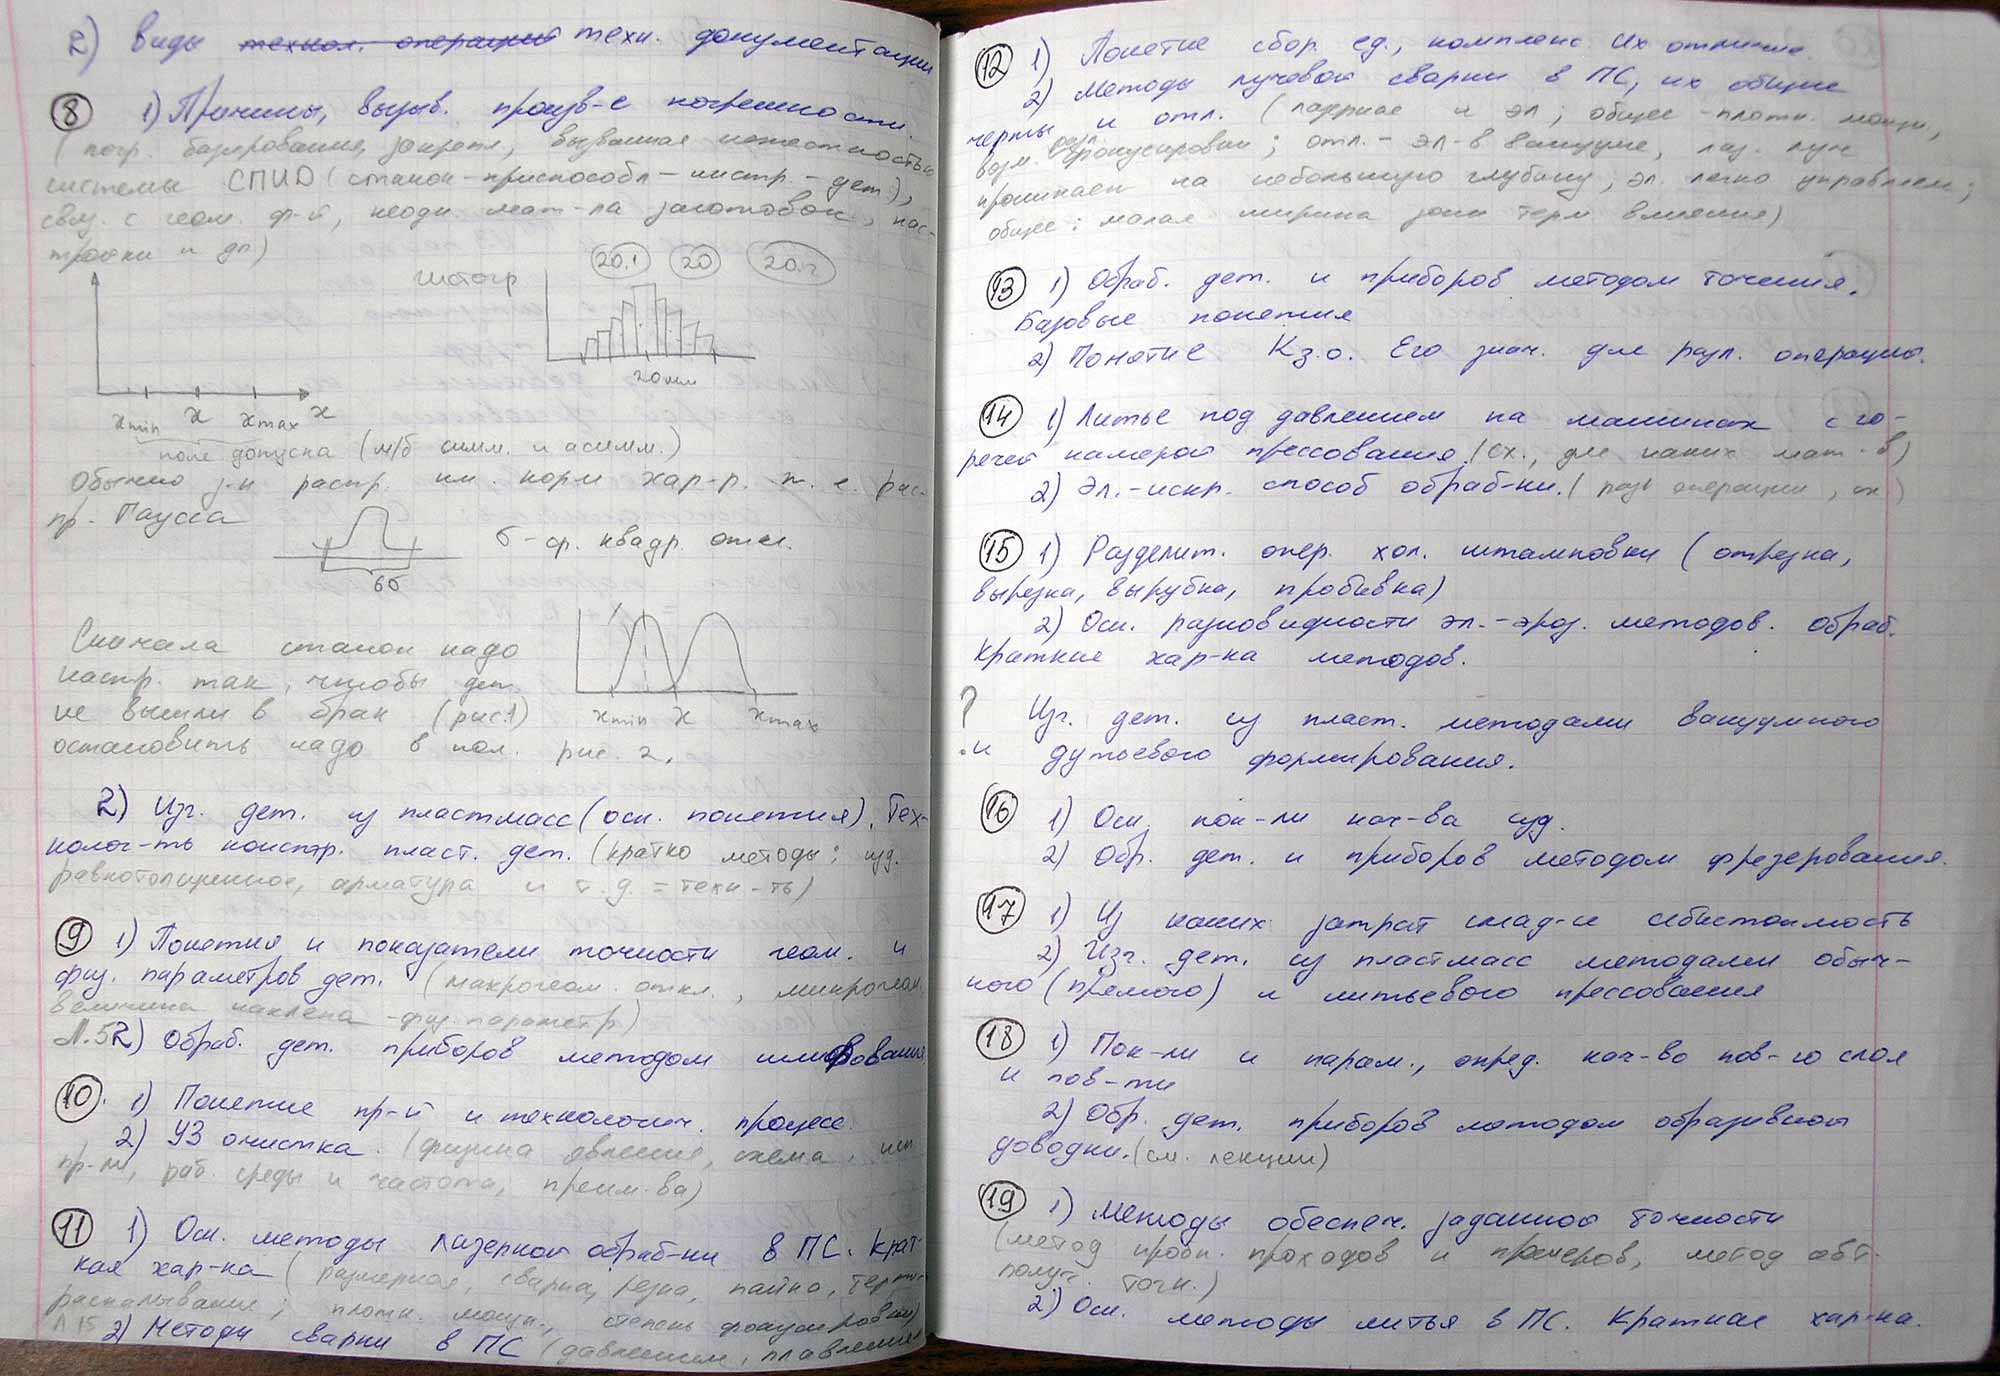 2) Виды технол. операций техн. документации
8 1) Причины, вызыв. произв-е погрешности.
(погр. базирования, закрепл, вызванная нежесткостью
системы СПИД (станок-приспособл-инстр.-дет.),
связ. с геом. ф-й, неодн. мат-ла заготовок, нас-
тройки и др)
гистогр
20.1 20 20.2
20мм
xmin x xmax x
поле допуска (м/б симм. и асимм.)
Обычно з-н распр. им. норм хар-р. т. е. рас-
пр. Гаусса
σ-ср. квадр. откл.
6σ
Сначала станок надо
настр. так, чтобы дет.
не вышли в брак (рис.1)
остановить надо в пол. рис. 2.
xmin x xmax
2) Изг. дет. из пластмасс (осн. понятия). Тех-
нолог-ть констр. пласт. дет. (кратко методы; изд.
равнотолщинное, арматура и т.д. = техн-ть)
9 1) Понятия и показатели точности геом. и
физ. параметров дет. (макрогеом. откл., микрогеом.
величина наклепа -физ.параметр)
Л.5 2) Обраб. дет. приборов методом шлифования
10. 1) Понятие пр-й и технологич. процесс.
2) УЗ очистка. (физика явления, схема, исп.
пр-ли, раб. среды и частота, преим-ва)
11 1) Осн. методы лазерной обраб-ки в ПС. Крат-
кая хар-ка (размерная, сварка, резка, пайка, термо-
раскалывание; плотн. мощн., степень фокусировки)
Л 15 2) Методы сварки в ПС (давлением, плавлением
12 1) Понятие сбор. ед., комплекс. Их отличие
2) Методы лучевой сварки в ПС, их общие
черты и отл. (лазерная и эл; общее -плотн. мощн,
возм. фокусировки; отл.- эл-в вакууме, лаз. луч
проникает на небольшую глубину; эл. легко управляем;
общее: малая ширина зоны терм влияния)
13 1) Обраб. дет. и приборов методом точения.
Базовые понятия
2) Понятие Кз.о. Его знач. для разл. операций.
14 1) Литье под давлением на машинах с го-
рячей камерой прессования. (сх., для каких мат-в)
2) Эл.-искр. способ обраб-ки. (разн операции, сх)
15 1) Разделит. опер. хол. штамповки (отрезка,
вырезка, вырубка, пробивка)
2) Осн. разновидности эл.-эроз. методов. обраб.
Краткие хар-ка методов.
? Изг. дет. из пласт. методами вакуумного
и дутьевого формирования.
16 1) Осн. пок-ли кач-ва изд.
2) Обр. дет. и приборов методом фрезерования.
17 1) Из каких затрат склад-ся себестоимость
2) Изг. дет. из пластмасс методами обыч-
ного (прямого) и литьевого прессования
18 1) Пок-ли и парам., опред. кач-во пов-го слоя
и пов-ти
2) Обр. дет. приборов методом абразивной
доводки. (см. лекции)
19 1) Методы обеспеч. заданной точности
(метод пробн. проходов и промеров, метод авт.
получ. точн.)
2) Осн. методы литья в ПС. Краткая хар-ка.